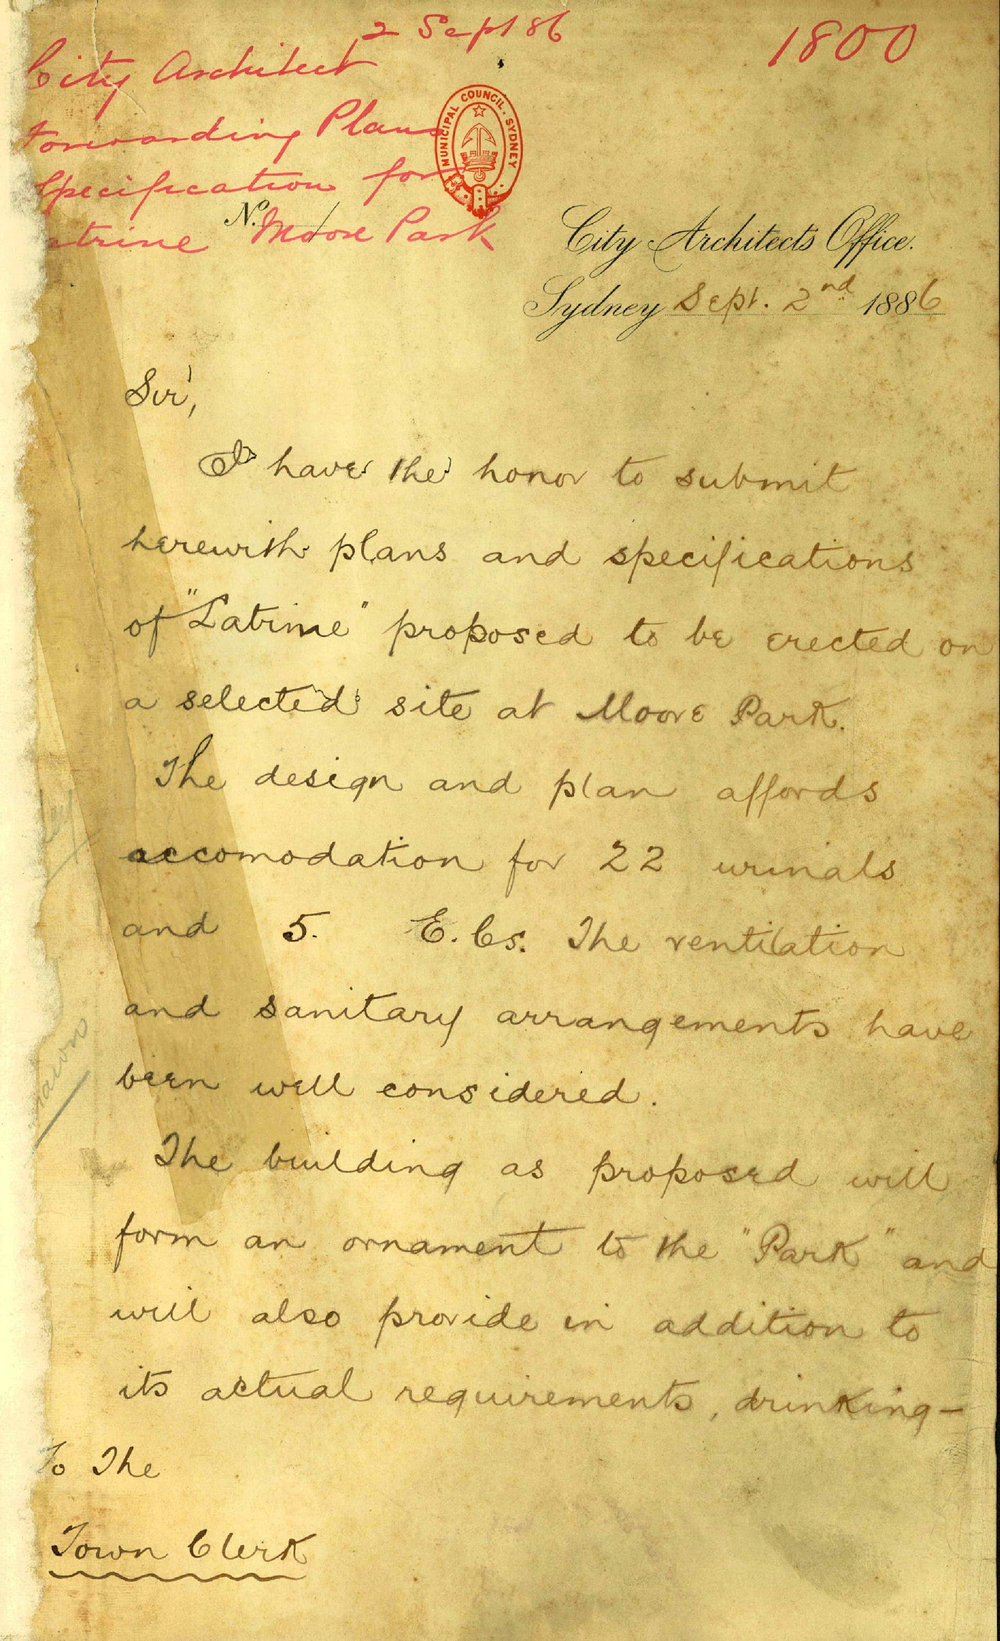 2 Sept 86
1800
City Architect
Forwarding Plans
Specification for
atrine Moore Park
MUNICIPAL COUNCIL. SYDNEY
No.
City Architects Office.
Sydney Sept. 2nd 1886
Sir,
I have the honor to submit
herewith plans and specifications
of "Latrine" proposed to be erected on
a selected site at Moore Park.
The design and plan affords
accomodation for 22 urinals
and 5. E.Cs. The ventilation
and sanitary arrangements have
been well considered.
The building as proposed will
form an ornament to the "Park" and
will also provide in addition to
its actual requirements, drinking-
To The
Town Clerk